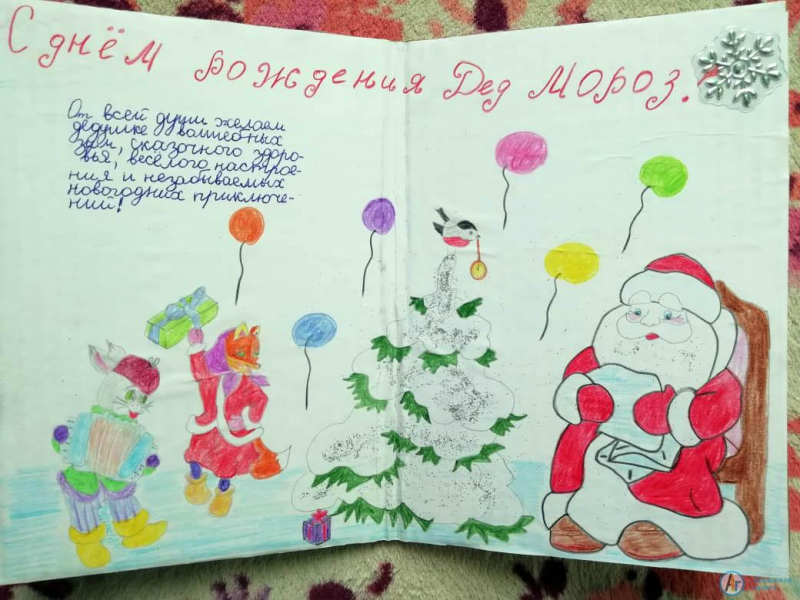 С днём рождения Дед Мороз!
От всей души желаем
дедушке волшебных
зим, сказочного здоро-
вья, весёлого настрое-
ния и незабываемых
новогодних приключе-
ний!